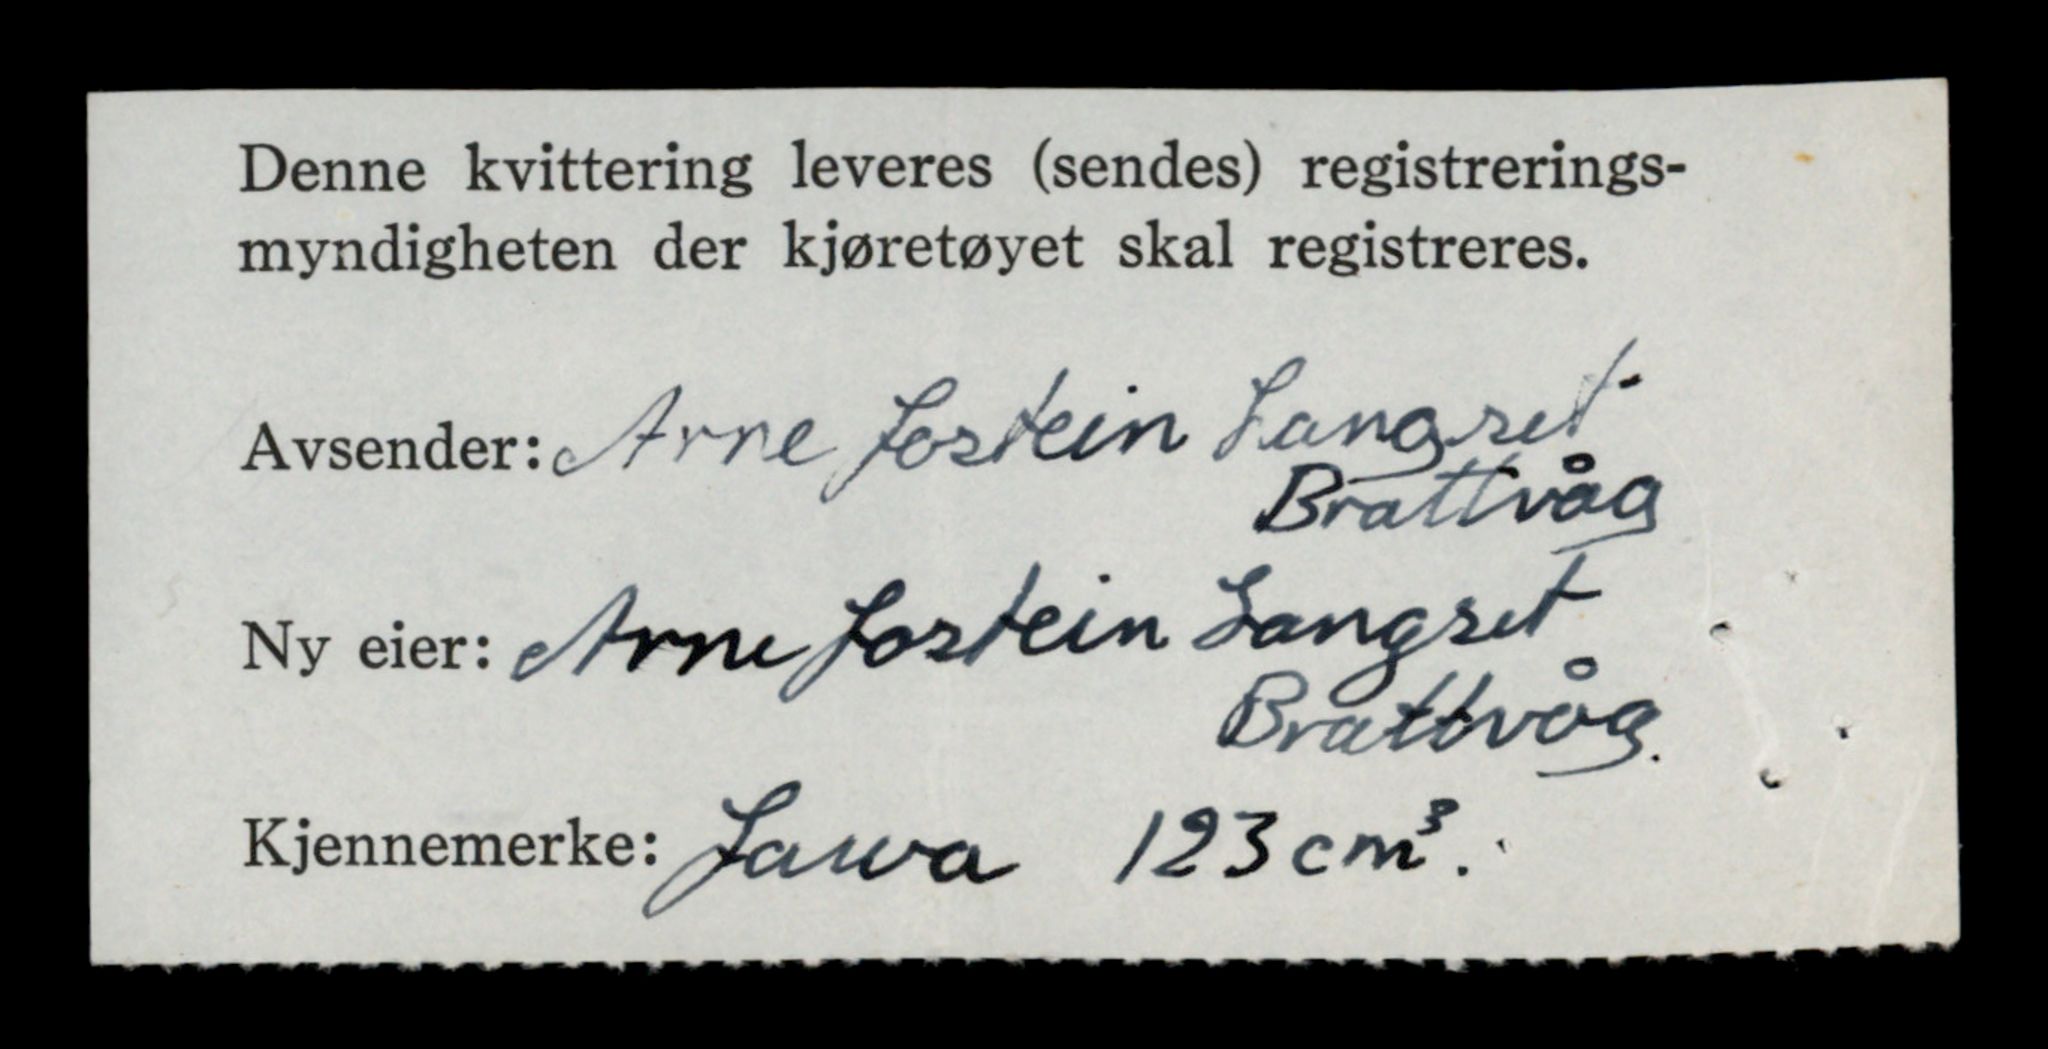 Denne kvittering leveres (sendes) registrerings-
myndigheten der kjøretøyet skal registreres.
Avsender: Arne Jostein Langset
Brattvåg
Ny eier: Arne Jostein Langset
Brattvåg.
Kjennemerke: Jawa 123 cm³.